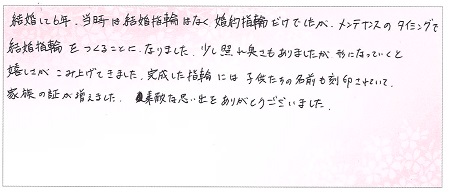 結婚して6年。当時は結婚指輪はなく婚約指輪だけでしたが、メンテナンスのタイミングで
結婚指輪をつくることになりました。少し照れ臭さもありましたが、形になっていくと
嬉しさがこみ上げてきました。完成した指輪には子供たちの名前も刻印されていて、
家族の証が増えました。素敵な思い出をありがとうございました。